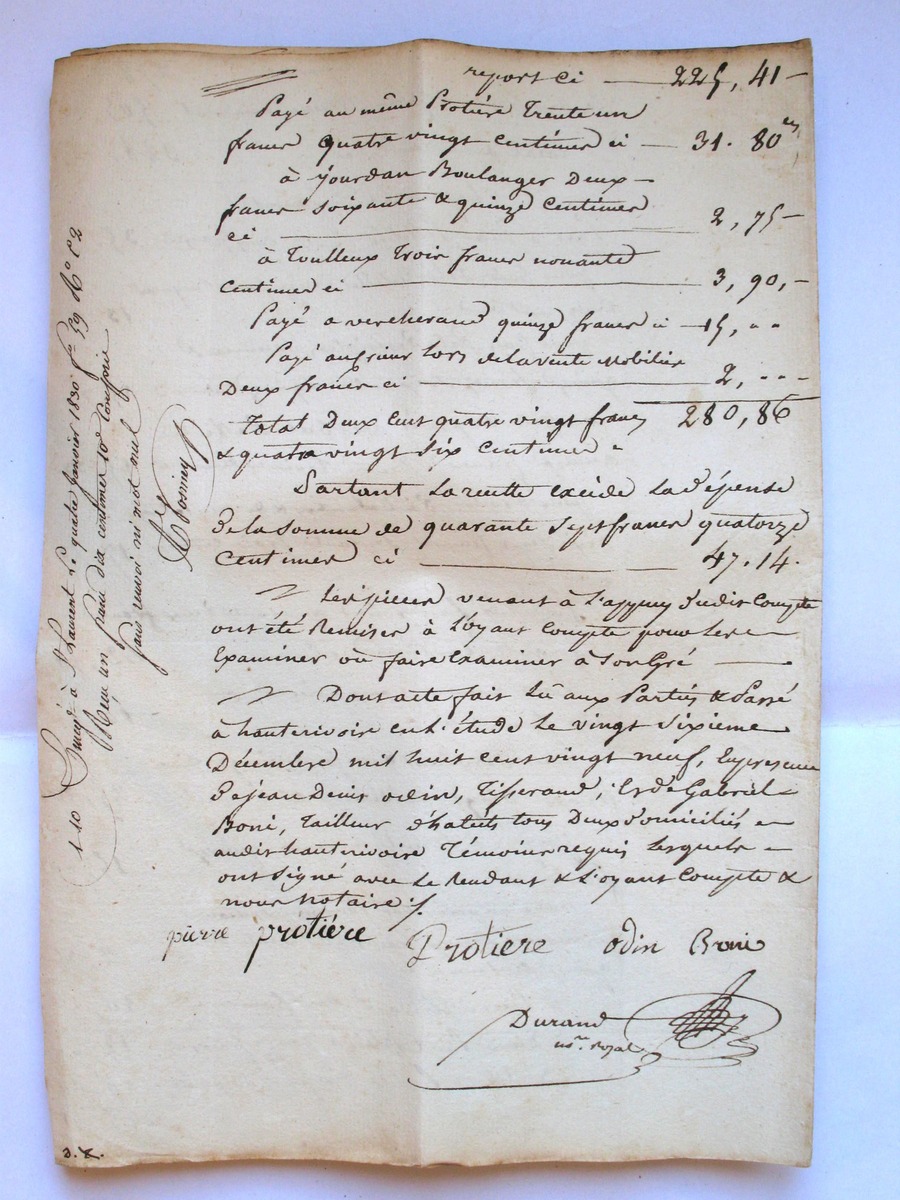 report ci — 225, 41 —
Payé au même Protière Trente un
francs quatre vingt Centimes ci — 31. 80 es
à Jourdan Boulanger Deux —
francs soixante & quinze Centimes
ci — 2, 75 —
à Toulleux Trois francs nonante
Centimes ci — 3, 90, —
Payé a vercherand quinze francs ci — 15, " "
Payé au crieur lors de la vente Mobilière
Deux francs ci — 2, " " "
Total Deux cent quatre vingt francs 280, 86
& quatre vingt six Centimes
Partant la recette excède la Dépense
De la somme de quarante sept francs quatorze
Centimes ci — 47. 14.
Les pieces venant à l'appuy Dudit Compte
ont été Remises à l'oyant Compte pour les —
Examiner où faire Examiner à Son Gré —
Dont acte fait lû aux Parties & Passé
à hauterivoire en l'étude le vingt sixieme
Décembre mil huit cent vingt neuf, En presence
De jean Denis odin, Tisserand, & de Gabriel
Boni, Tailleur d'habits tous Deux Domiciliés
audit hauterivoire Témoins requis lesquels —
ont signé avec le Rendant & l'oyant Compte &
nous notaire ./.
pierre protière Protiere odin Boni
Durand
nre. Royal
D. &.
Enregé à St Laurent Le quatre Janvier 1830 fo 59 Ro C 2
1-10 Reçu un franc dix centimes 10e Compris
sans renvoi ni mot nul